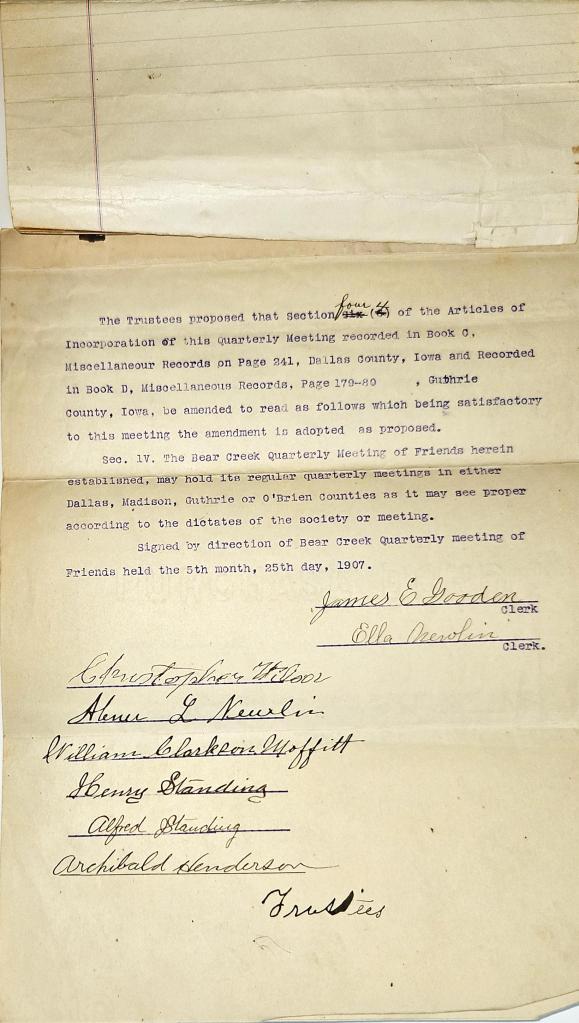 The Trustees proposed that Section four six (4) of the Articles of
Incorporation of this Quarterly Meeting recorded in Book C,
Miscellaneour Records on Page 241, Dallas County, Iowa and Recorded
in Book D, Miscellaneous Records, Page 179-80 , Guthrie
County, Iowa, be amended to read as follows which being satisfactory
to this meeting the amendment is adopted as proposed.
Sec. 1V. The Bear Creek Quarterly Meeting of Friends herein
established, may hold its regular quarterly meetings in either
Dallas, Madison, Guthrie or O'Brien Counties as it may see proper
according to the dictates of the society or meeting.
Signed by direction of Bear Creek Quarterly meeting of
Friends held the 5th month, 25th day, 1907.
James E Gooden
Clerk
Ella Newlin
Clerk.
Christopher Wilson
Abner L Newlin
William Clarkson Moffitt
Henry Standing
Alfred Standing
Archibald Henderson
Trustees